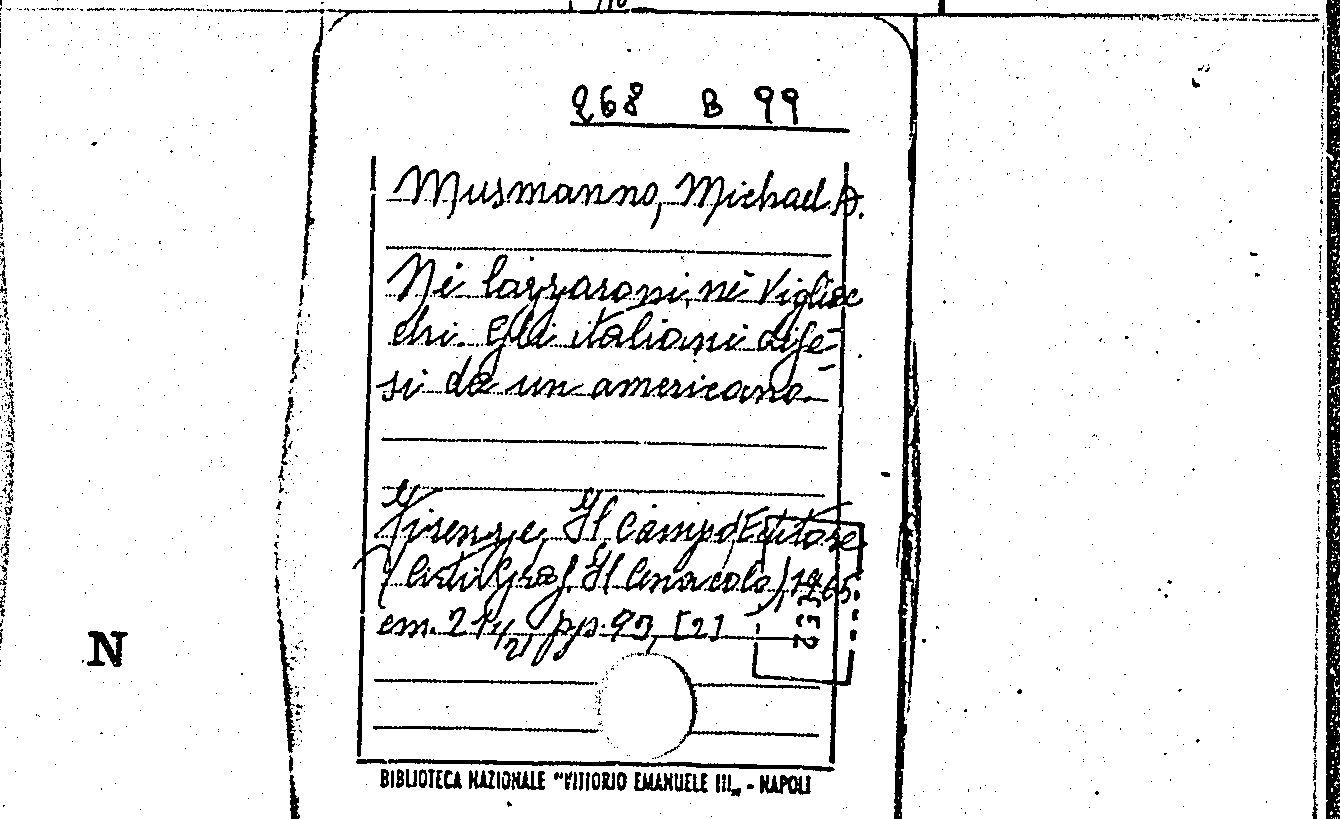 268 B 99
Musmanno, Michael A.
Nè lazzaroni, nè vigliac
chi. Gli italiani dife-
si da un americano.-
Firenze, Il Campo Editore
(Arti Graf. Il Cenacolo), 1965.
cm. 21, pp. 93, [2]
N
BIBLIOTECA NAZIONALE "VITTORIO EMANUELE III" - NAPOLI